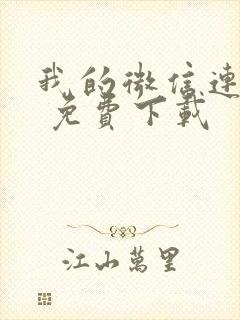 我的微信連
免費下載
江山萬里